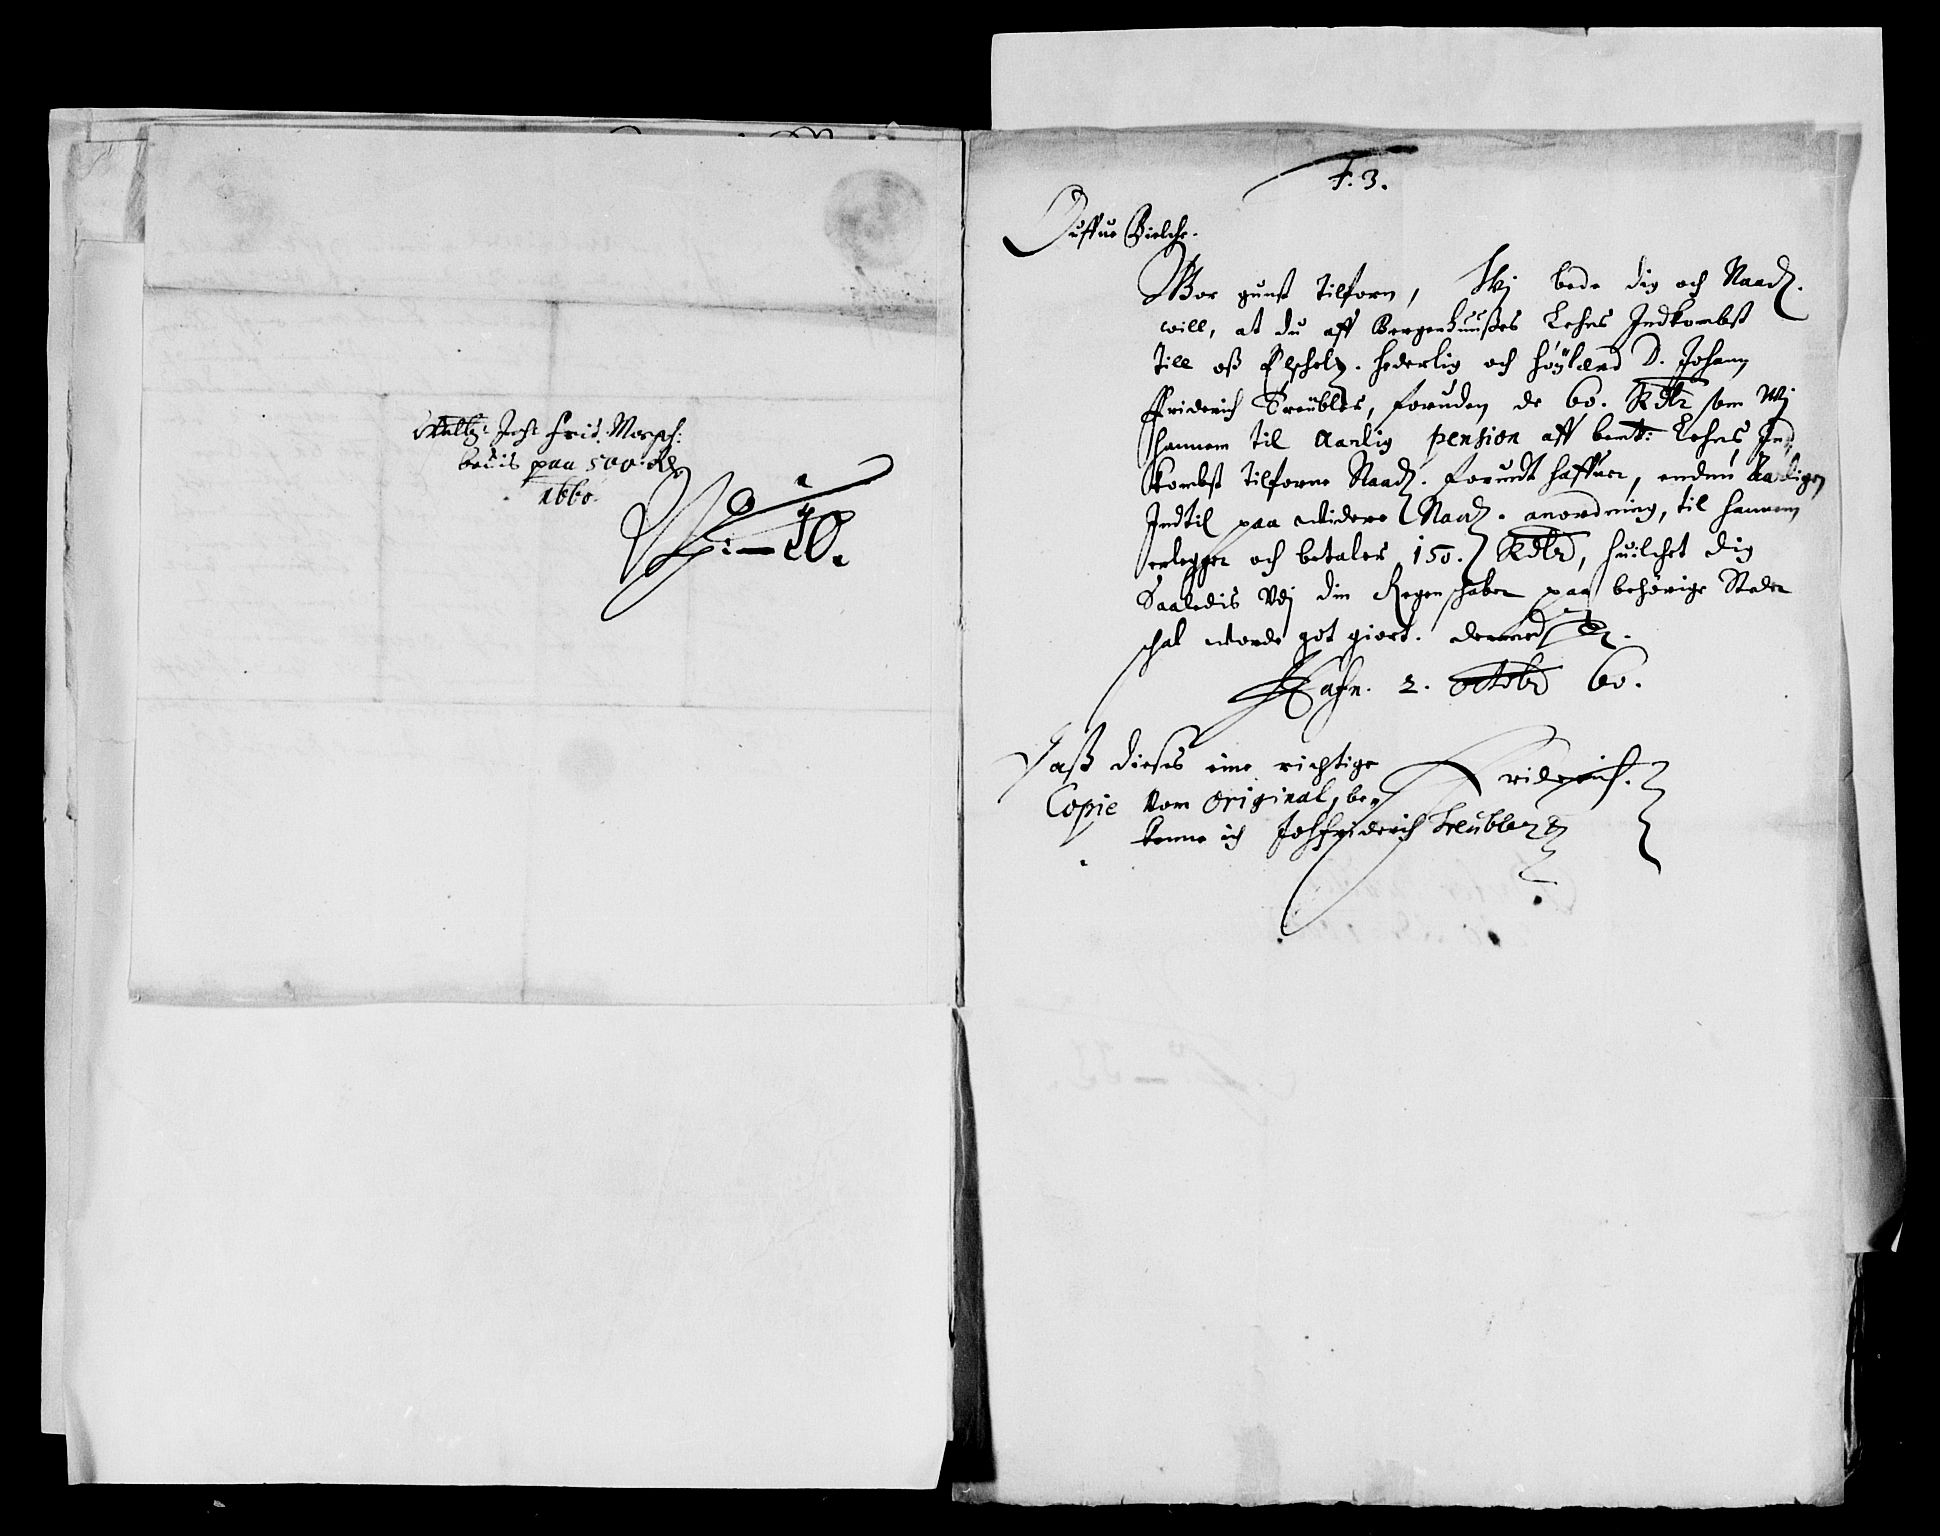 beuis paa 500 Rdr
1660.
No 10.
F. 3.
Ouffue Bielche.
Wor gunst tilforn, Wj bede dig och Naadr.
will, at du aff Bergenhuußes Lehns Indkombst
till oß Elschelr. hederlig och höylærd D. Johann
Friderich Treubler, foruden de 60. Rdlr som Wj
hannem til Aarlig pension aff bemt: Lehns Ind
kombst tilforne Naadr. forundt haffuer, endnu Aarligen
Indtil paa widere Naadr. anordning, til hannem
erlegger och betaler 150. Rdlr, huilchet dig
Saaledis Vdj din Regenschaber paa behörige Steder
schal worde got giort. dermed etc.
Hafn. 2. octobr 60.
Friderich.
Daß dieses eine richtige
Copie Vom Original, be-
kenne ich Johfriderich Treubler